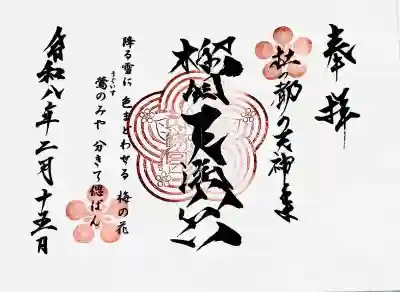 奉拝
杜の都の天神さま
榴岡天満宮
降る雪に 色まどわせる 梅の花
うぐいす
鶯のみや 分きて偲ばん
令和八年二月十五日